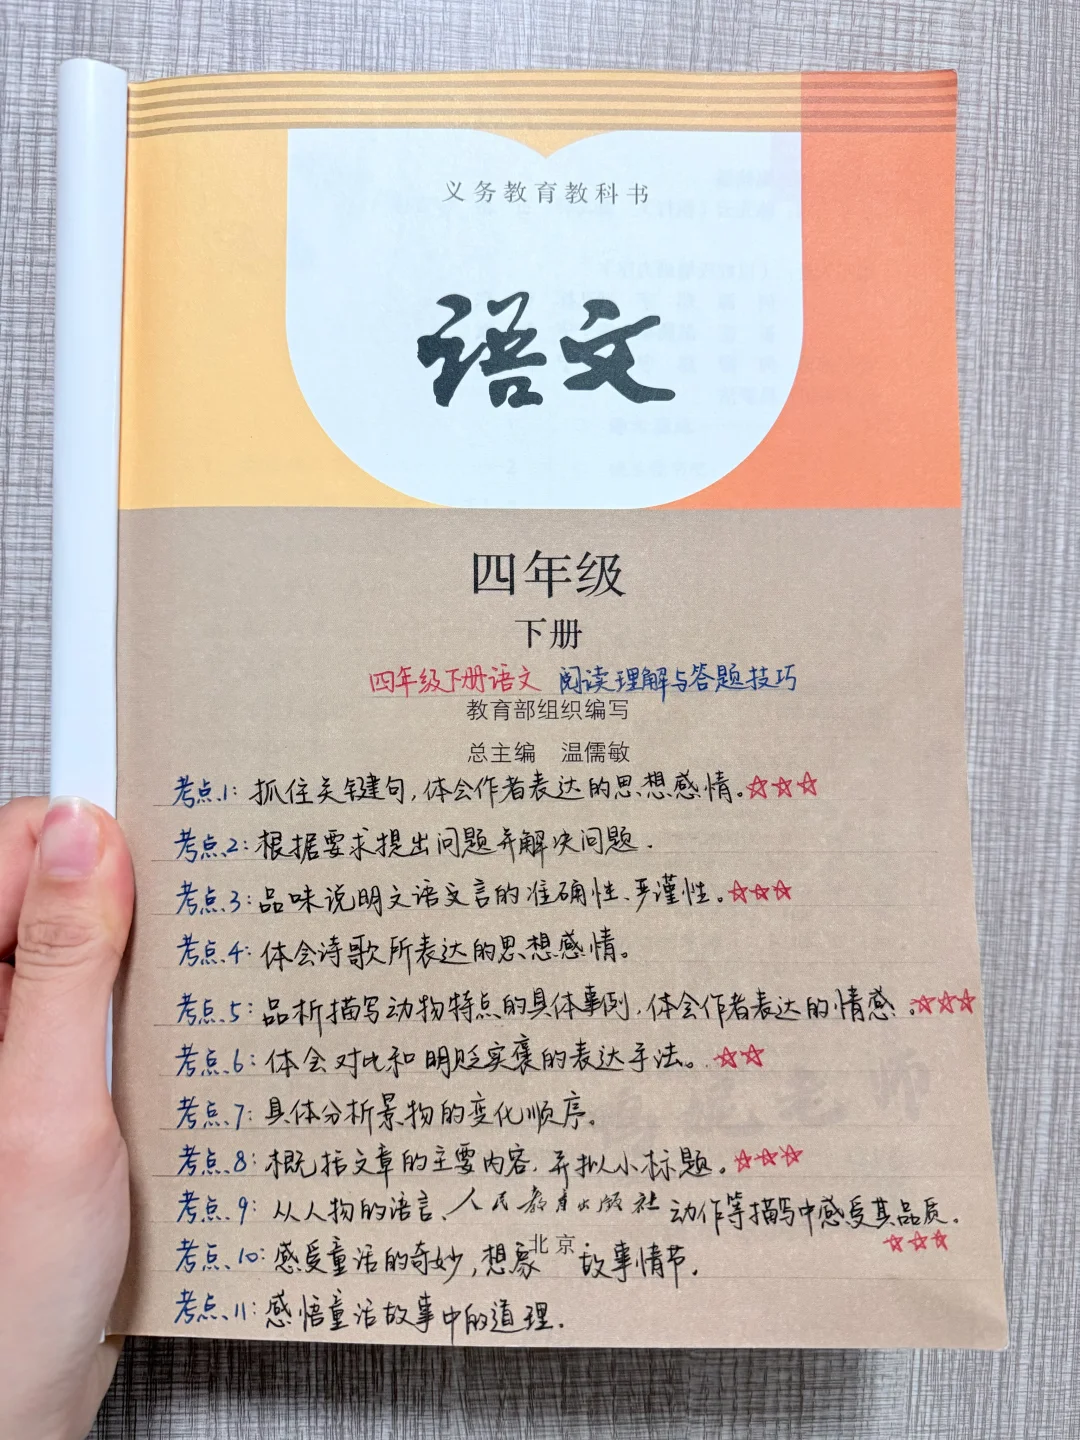 义务教育教科书
语文
四年级
下册
四年级下册语文 阅读理解与答题技巧
教育部组织编写
总主编 温儒敏
考点1: 抓住关键句,体会作者表达的思想感情。☆☆☆
考点2: 根据要求提出问题并解决问题.
考点3: 品味说明文语文言的准确性、严谨性。☆☆☆
考点4: 体会诗歌所表达的思想感情。
考点5: 品析描写动物特点的具体事例,体会作者表达的情感。☆☆☆
考点6: 体会对比和明贬实褒的表达手法。☆☆
考点7: 具体分析景物的变化顺序。
考点8: 概括文章的主要内容,并拟小标题。☆☆☆
考点9: 从人物的语言、动作等描写中感受其品质.
☆☆☆
人民教育出版社
北京
考点10: 感受童话的奇妙,想象故事情节.
考点11: 感悟童话故事中的道理.